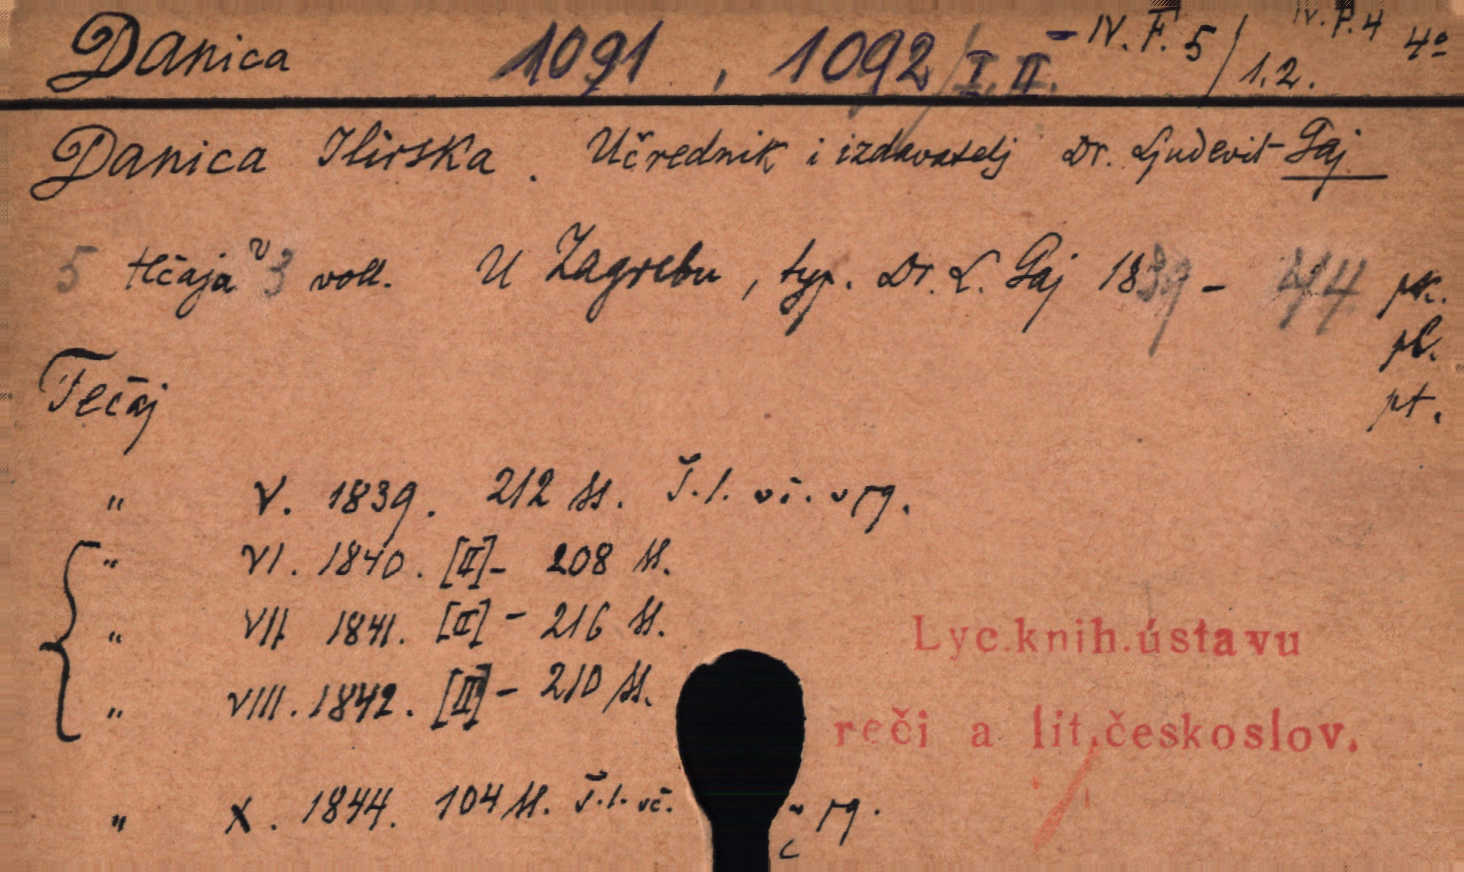 Danica 1091, 1092/I. II. - IV. F. 5/1.2. IV. F. 4 4º
Danica Ilirska. Učrednik i izdavatelj Dr. Ljudevit Gaj.
5 tečaja v 3 voll. U Zagrebu, typ. Dr. L. Gaj 1839 - 44
pl.
pt.
Tečaj
" V. 1839. 212 ss. Š.l. vč. v rg.
" VI. 1840. [II]- 208 ss.
" VII 1841. [II] - 216 ss.
" VIII. 1842. [II] - 210 ss.
" X. 1844. 104 ss. Š.l. vč. v rg.
Lyc.knih.ústavu
reči a lit.českoslov.